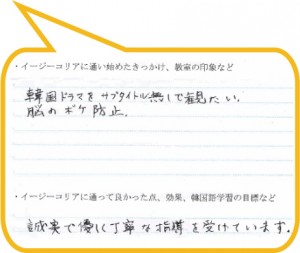 ・イージーコリアに通い始めたきっかけ、教室の印象など
韓国ドラマをサブタイトル無しで観たい.
脳のボケ防止.
・イージーコリアに通って良かった点、効果、韓国語学習の目標など
誠実で優しく丁寧な指導を受けています.